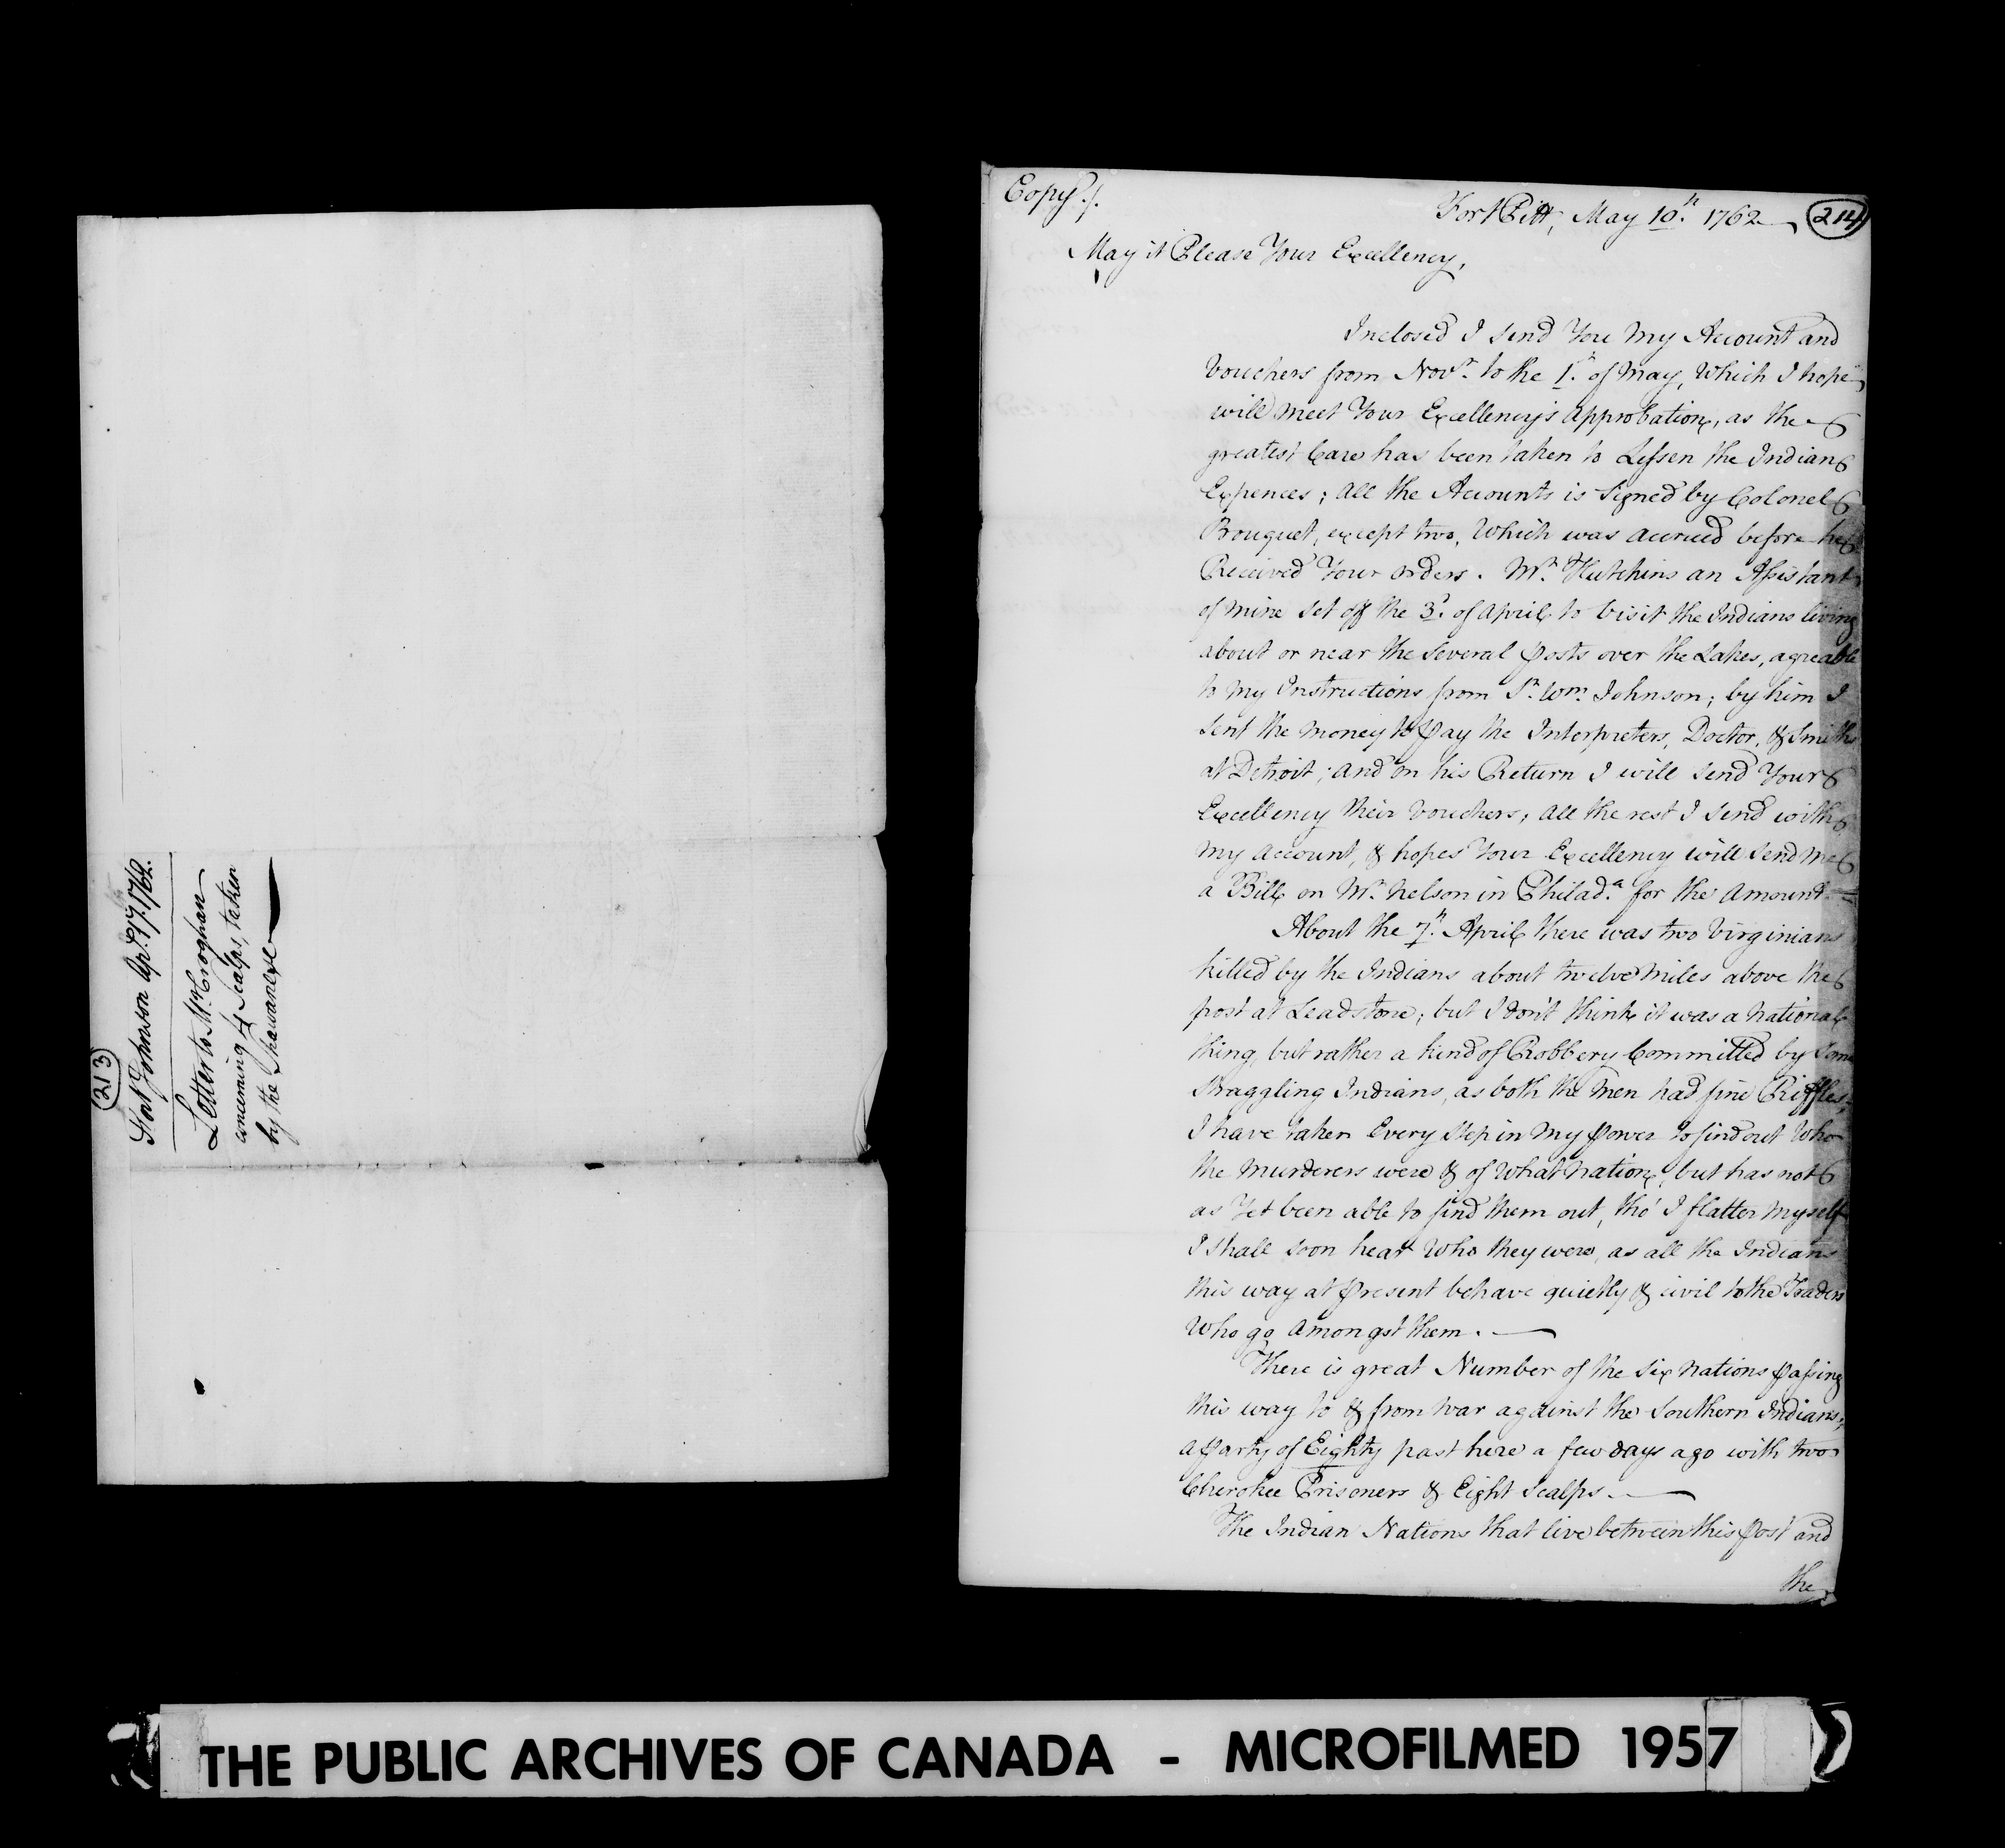 213
Fort Johnson Apr. 17. 1762.
Letter to Mr. Croghan
concerning 4 Scalps, taken
by the Shawanese
Copy./.
Fort Pitt, May 10th. 1762
214
May it Please Your Excellency,
Inclosed I send You My Account and
Vouchers from Novr. to the 1st. of May, Which I hope
will meet Your Excellency's Approbation, as the
greatest Care has been taken to Lessen the Indian
Expences; All the Accounts is Signed by Colonel
Bouquet, except two, Which was accrued before he
Received Your orders. Mr. Hutchins an Assistant
of mine set off the 3d. of April to Visit the Indians living
about or near the Several posts over the Lakes, agreable
to My Instructions from Sr. Wm. Johnson; by him I
Sent the Money to pay the Interpreters, Doctor, & Smiths
at Detroit; and on his Return I will send Your
Excellency their Vouchers; All the rest I send with
My account, & hopes Your Excellency will send me
a Bill on Mr. Nelson in Philada. for the Amount
About the 7th. April there was two Virginians
killed by the Indians about twelve Miles above the
post at Leadstone; but I don't think it was a National
thing, but rather a kind of Robbery Committed by Some
Straggling Indians, as both the Men had fine Riffles,
I have taken Every Step in My power to find out Who
the Murderers were & of What Nation, but has not
as Yet been able to find them out, tho' I flatter Myself
I Shall soon hear Who they were, as all the Indians
this way at present behave quietly & civil to the Traders
Who go Amongst them.
There is great Number of the Six Nations passing
this way to & from War against the Southern Indians;
a party of Eighty past here a few days ago with two
Cherokee Prisoners & Eight Scalps.
The Indian Nations that live between this post and
the
THE PUBLIC ARCHIVES OF CANADA - MICROFILMED 1957